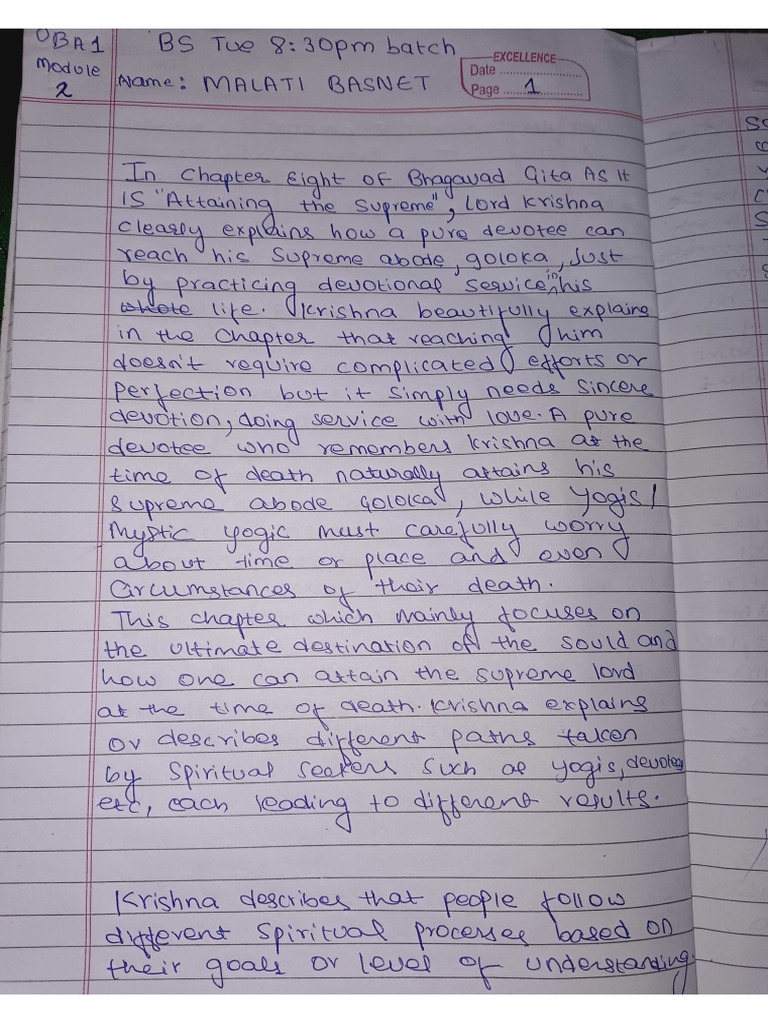 OBA1 BS Tue 8:30pm batch
Module
2
Name: MALATI BASNET
EXCELLENCE
Date ............................
Page ........1..............
In Chapter Eight of Bhagavad Gita As It
Is "Attaining the Supreme", Lord Krishna
clearly explains how a pure devotee can
reach his Supreme abode, goloka, Just
by practicing devotional service in his
whole life. Krishna beautifully explains
in the chapter that reaching him
doesn't require complicated efforts or
perfection but it simply needs sincere
devotion, doing service with love. A pure
devotee who remembers Krishna at the
time of death naturally attains his
supreme abode Goloka, while Yogis/
Mystic yogic must carefully worry
about time or place and even
Circumstances of their death.
This chapter which mainly focuses on
the ultimate destination of the sould and
how one can attain the supreme lord
at the time of death. Krishna explains
or describes different paths taken
by spiritual seekers such as yogis, devotees
etc, each leading to different results.
Krishna describes that people follow
different spiritual processes based on
their goals or level of understanding.